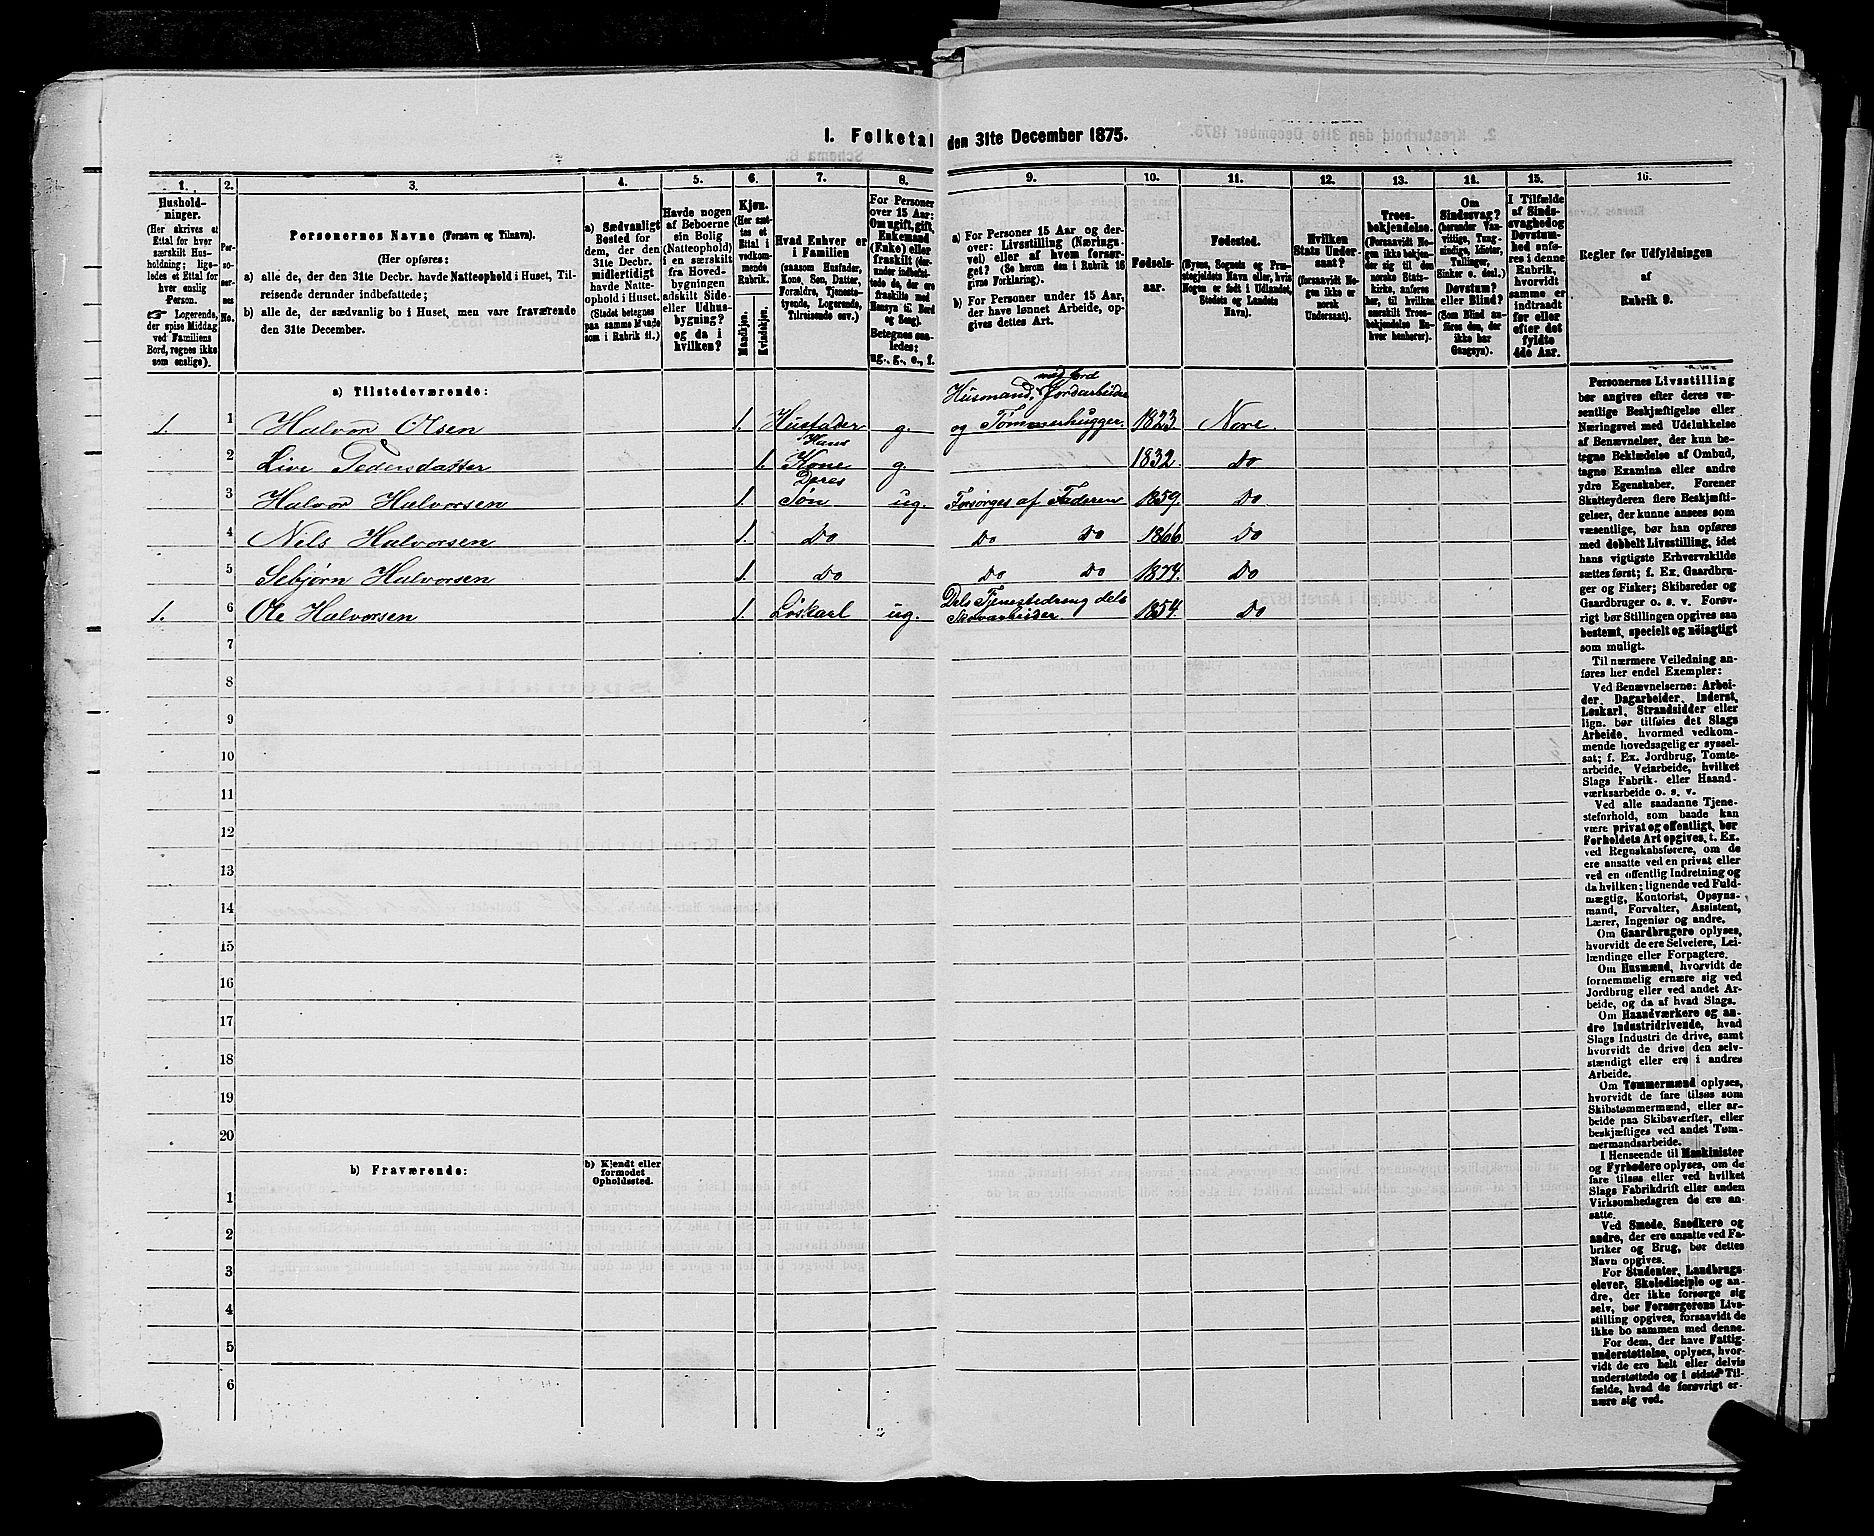 I. Folketal den 31te December 1875.
1. 2. 3. 4. 5. 6. 7. 8. 9. 10. 11. 12. 13. 14. 15. 16.
Husholdninger.
(Her skrives et Ettal for hver særskilt Husholdning; ligeledes et Ettal for hver enslig Person.
☞ Logerende, der spise Middag ved Familiens Bord, regnes ikke som enslige).
Personernes No.
Personernes Navne (Fornavn og Tilnavn).
(Her opføres:
a) alle de, der den 31te Decbr. havde Natteophold i Huset, Tilreisende derunder indbefattede;
b) alle de, der sædvanlig bo i Huset, men vare fraværende den 31te December.
a) Sædvanligt Bosted for dem, der den 31te Decbr. midlertidigt havde Natteophold i Huset. (Stedet betegnes paa samme Maade som i Rubrik 11.)
Havde nogen af Beboerne sin Bolig (Natteophold) i en særskilt fra Hovedbygningen adskilt Side- eller Udhusbygning? og da i hvilken?
Kjøn. (Her sættes et Ettal i vedkommende Rubrik.
Mandkjøn. Kvindekjøn.
Hvad Enhver er i Familien (saasom Husfader, Kone, Søn, Datter, Forældre, Tjenestetyende, Logerende, Tilreisende osv.)
For Personer over 15 Aar: Om ugift, gift, Enkemand (Enke) eller fraskilt (derunder indbefattede de, der ere fraskilte med Hensyn til Bord og Seng). Betegnes saaledes: ug., g., e., f.
a) For Personer 15 Aar og derover: Livsstilling (Næringsvei) eller af hvem forsørget? (Se herom den i Rubrik 16 givne Forklaring).
b) For Personer under 15 Aar, der have lønnet Arbeide, opgives dettes Art.
Fødselsaar.
Fødested.
(Byens, Sognets og Præstegjeldets Navn eller, hvis Nogen er født i Udlandet, Stedets og Landets Navn).
Hvilken Stats Undersaat? (forsaavidt Nogen ikke er norsk Undersaat).
Troesbekjendelse. (Forsaavidt Nogen ikke bekjender sig til den norske Statskirke, anføres her, til hvilken særskilt Troesbekjendelse Enhver henhører).
Om Sindssvag? (herunder Vanvittige, Tungsindige, Idioter, Tullinger, Sinker o. desl.) Døvstum? eller Blind? (Som Blind anføres den, der ikke har Gangsyn).
I Tilfælde af Sindssvaghed og Døvstumhed anføres i denne Rubrik, hvorvidt samme er indtraadt før eller efter det fyldte 4de Aar.
Regler for Udfyldningen af Rubrik 9.
a) Tilstedeværende:
1. 1 Halvor Olsen 1. Husfader g. Husmand med Jord, Jordarbeide og Tømmerhugger. 1823. Nore.
2 Live Pedersdatter 1. Hans Kone g. 1832. Do
3 Halvor Halvorsen 1. Deres Søn ug. Forsørges af Faderen 1859. Do
4 Nils Halvorsen 1. Do Do Do 1866. Do
5 Sebjørn Halvorsen 1. Do Do Do 1874. Do
1. 6 Ole Halvorsen 1. Løskarl ug. Dels Tjenestedreng dels Skovarbeider 1854. Do
7
8
9
10
11
12
13
14
15
16
17
18
19
20
b) Fraværende:
b) Kjendt eller formodet Opholdssted.
1
2
3
4
5
6
Personernes Livsstilling
bør angives efter deres væ-
sentlige Beskjæftigelse eller
Næringsvei med Udelukkelse
af Benævnelser, der kun be-
tegne Beklædelse af Ombud,
tagne Examina eller andre
ydre Egenskaber. Forener
Skatteyderen flere Beskjæfti-
gelser, der kunne ansees som
væsentlige, bør han opføres
med dobbelt Livsstilling, idet
hans vigtigste Erhvervskilde
sættes først; f. Ex. Gaardbru-
ger og Fisker; Skibsreder og
Gaardbruger o. s. v. Forøv-
rigt bør Stillingen opgives saa
bestemt, specielt og nöiagtigt
som muligt.
Til nærmere Veiledning an-
føres her endel Exempler:
Ved Benævnelserne: Arbei-
der, Dagarbeider, Inderst,
Løskarl, Strandsidder eller
lign. bør tilføies det Slags
Arbeide, hvormed vedkom-
mende hovedsagelig er syssel-
sat; f. Ex. Jordbrug, Tomte-
arbeide, Veiarbeide, hvilket
Slags Fabrik- eller Haand-
værksarbeide o. s. v.
Ved alle saadanne Tjene-
steforhold, som baade kan
være privat og offentligt, bør
Forholdets Art opgives, t. Ex.
ved Regnskabsførere, om de
ere ansatte ved en privat eller
ved en offentlig Indretning og
da hvilken; lignende ved Fuld-
mægtig, Kontorist, Opsyns-
mand, Forvalter, Assistent,
Lærer, Ingeniør og andre.
Om Gaardbrugere oplyses,
hvorvidt de ere Selveiere, Lei-
lændinge eller Forpagtere.
Om Husmænd, hvorvidt de
fornemmelig ernære sig ved
Jordbrug eller ved andet Ar-
beide, og da af hvad Slags.
Om Haandværkere og an-
dre Industridrivende, hvad
Slags Industri de drive, samt
hvorvidt de drive den selv-
stændigt eller ere i andres
Arbeide.
Om Tømmermænd oplyses,
hvorvidt de fare tilsøs som
Skibstømmermænd, eller ar-
beide paa Skibsværfter, eller
beskjæftiges ved andet Tøm-
mermandsarbeide.
I Henseende til Maskinister
og Fyrbødere oplyses, om de
fare tilsøs eller ved hvilket
Slags Fabrikdrift eller anden
Virksomhedsgren de ere an-
satte.
Ved Smede, Snedkere og
andre, der ere ansatte ved Fa-
briker og Brug, bør dettes
Navn opgives.
For Studenter, Landbrugs-
elever, Skoledisciple og an-
dre, der ikke forsørge sig
selv, bør Forsørgerens Livs-
stilling opgives, forsaavidt de
ikke bo sammen med denne.
For dem, der have Fattig-
understøttelse, oplyses, hvor-
vidt de ere helt eller delvis
understøttede og i sidste Til-
fælde, hvad de forøvrigt er-
nære sig ved.